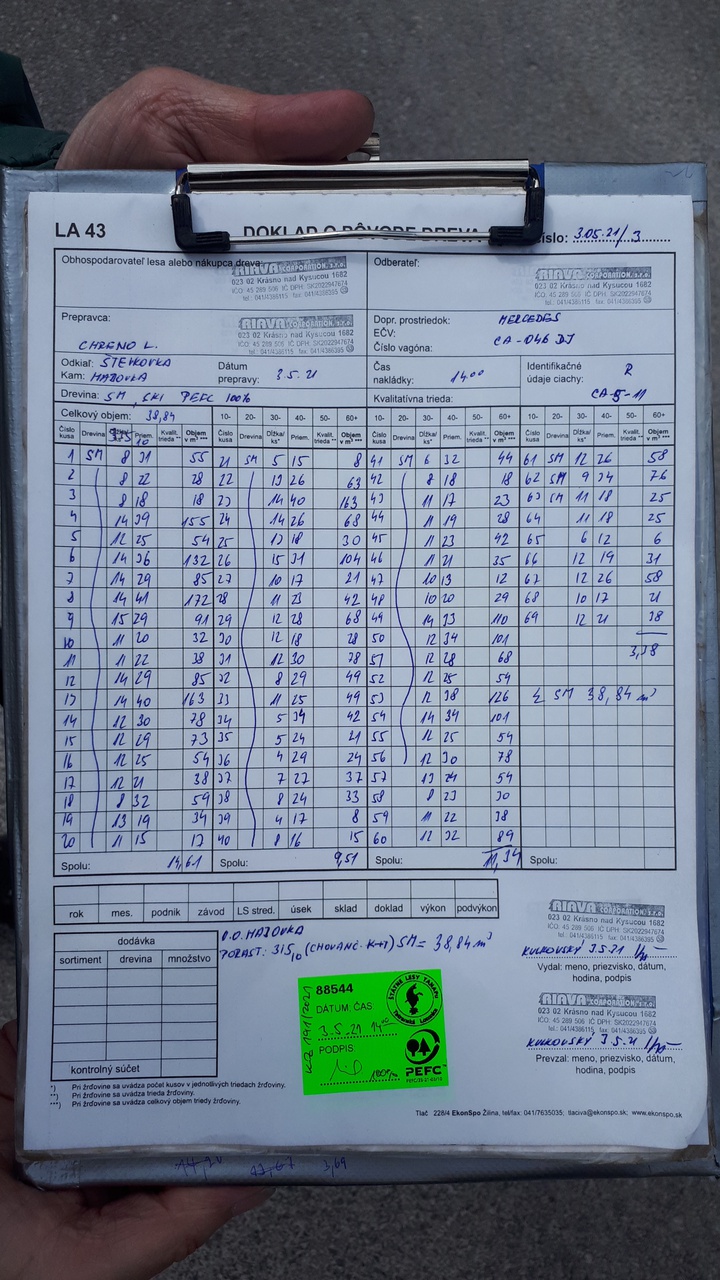 LA 43 DOKLAD O PÔVODE DREVA číslo: 3.05.21/3
Obhospodarovateľ lesa alebo nákupca dreva:
RIAVA CORPORATION, s.r.o.
023 02 Krásno nad Kysucou 1682
Odberateľ:
RIAVA CORPORATION, s.r.o.
023 02 Krásno nad Kysucou 1682
Prepravca:
RIAVA CORPORATION, s.r.o.
023 02 Krásno nad Kysucou 1682
CHRENO L.
Dopr. prostriedok: MERCEDES
EČV:
Číslo vagóna: CA-046 DJ
Odkiaľ: ŠTEVKOVKA
Kam: MAZOVKA
Dátum
prepravy: 3.5.21
Čas
nakládky: 14 00
Identifikačné
údaje ciachy: R
CA-5-11
Drevina: SM, SKI PEFC 100%
Kvalitatívna trieda:
Celkový objem: 38,84
10- 20- 30- 40- 50- 60+
10- 20- 30- 40- 50- 60+
10- 20- 30- 40- 50- 60+
Číslo kusa Drevina Priem. Kvalit. trieda ** Objem v m³ ***
Číslo kusa Drevina Dĺžka/ ks* Priem. Kvalit. trieda ** Objem v m³ ***
Číslo kusa Drevina Dĺžka/ ks* Priem. Kvalit. trieda ** Objem v m³ ***
Číslo kusa Drevina Dĺžka/ ks* Priem. Kvalit. trieda ** Objem v m³ ***
1 SM 8 31 55 21 SM 5 15 8 41 SM 6 32 44 61 SM 12 26 58
2 8 22 28 22 13 26 63 42 8 18 18 62 SM 9 34 76
3 8 18 18 23 14 40 163 43 11 17 23 63 SM 11 18 25
4 14 39 155 24 14 26 68 44 11 19 28 64 11 18 25
5 12 25 54 25 13 18 30 45 11 23 42 65 6 12 6
6 14 36 132 26 15 31 104 46 11 21 35 66 12 19 31
7 14 29 85 27 10 17 21 47 10 13 12 67 12 26 58
8 14 41 172 28 11 23 42 48 10 20 29 68 10 17 21
9 15 29 91 29 12 28 68 49 14 33 110 69 12 21 38
10 11 20 32 30 12 18 28 50 12 34 101
11 11 22 38 31 12 30 78 51 12 28 68 3,38
12 14 29 85 32 8 29 49 52 12 25 54
13 14 40 163 33 11 25 49 53 12 38 126 Σ SM 38,84 m³
14 12 30 78 34 5 34 42 54 14 34 101
15 12 29 73 35 5 24 21 55 12 25 54
16 12 25 54 36 4 29 24 56 12 30 78
17 12 21 38 37 7 27 37 57 13 24 54
18 8 32 59 38 8 24 33 58 8 23 30
19 13 19 34 39 4 17 8 59 11 22 38
20 11 15 17 40 8 16 15 60 12 32 89
Spolu: 14,61 Spolu: 9,51 Spolu: 11,34 Spolu:
rok mes. podnik závod LS stred. úsek sklad doklad výkon podvýkon
dodávka
sortiment drevina množstvo
kontrolný súčet
O.O. MAZOVKA
PORAST: 315 10 (CHOVANČ. K+T) SM = 38,84 m³
RIAVA CORPORATION, s.r.o.
023 02 Krásno nad Kysucou 1682
KULKOVSKÝ 3.5.21
Vydal: meno, priezvisko, dátum,
hodina, podpis
RIAVA CORPORATION, s.r.o.
023 02 Krásno nad Kysucou 1682
KULKOVSKÝ 3.5.21
Prevzal: meno, priezvisko, dátum,
hodina, podpis
88544
DÁTUM, ČAS
3.5.21 14 00
PODPIS:
ŠTÁTNE LESY TANAPU
Tatranská Lomnica
PEFC
*) Pri žrďovine sa uvádza počet kusov v jednotlivých triedach žrďoviny.
**) Pri žrďovine sa uvádza trieda žrďoviny.
***) Pri žrďovine sa uvádza celkový objem triedy žrďoviny.
Tlač 228/4 EkonSpo Žilina, tel/fax: 041/7635035; tlaciva@ekonspo.sk; www.ekonspo.sk